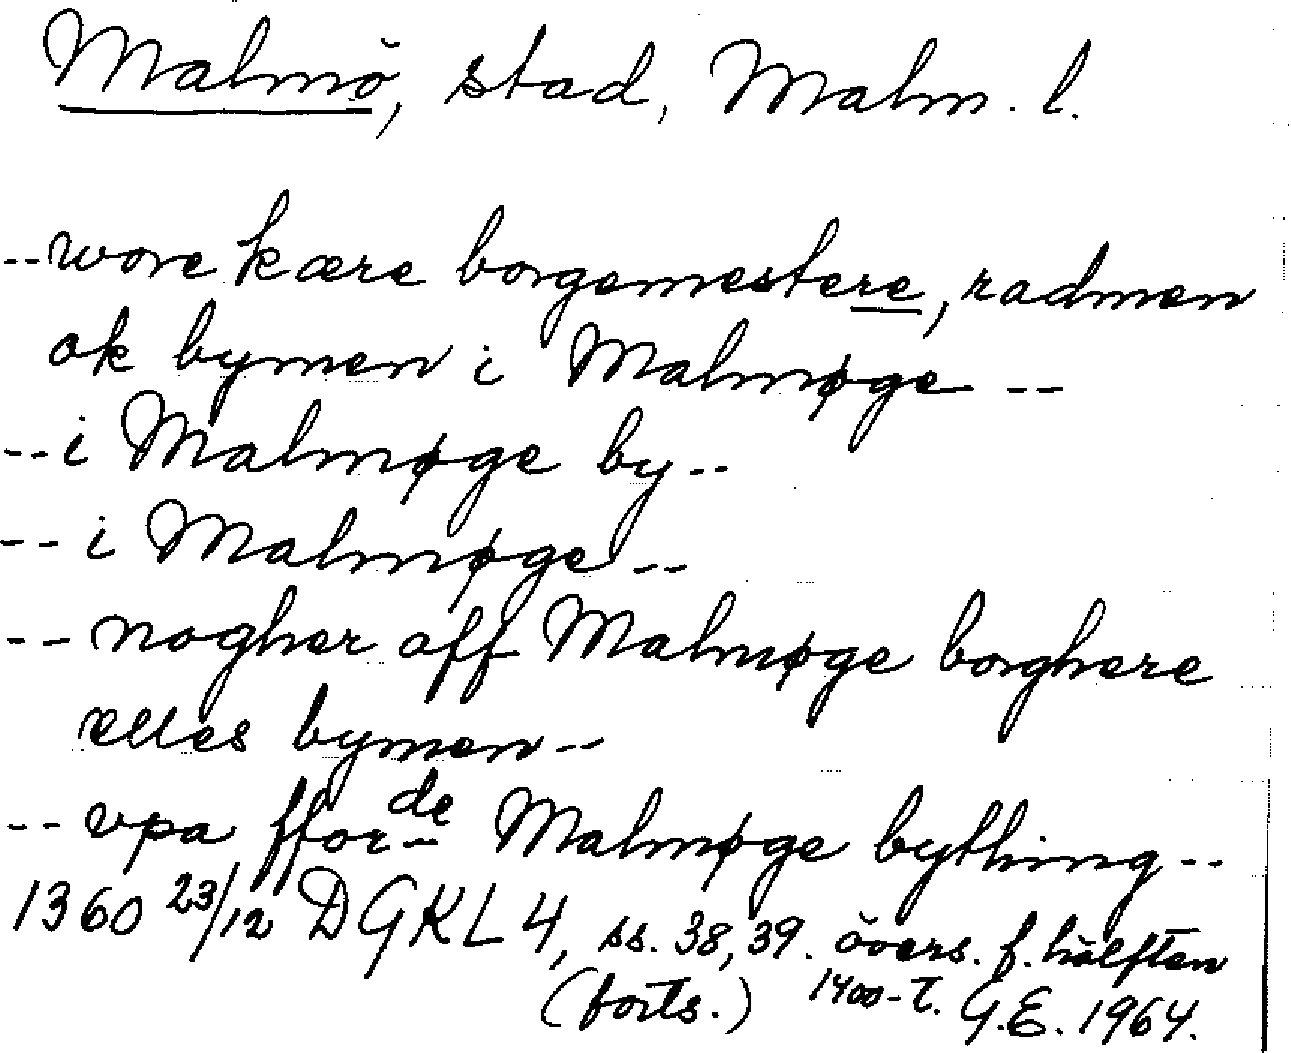 Malmö, stad, Malm. l.
--wore kære borgemestere, radmen
ok bymen i Malmøge --
--i Malmøge by--
--i Malmøge--
--nogher aff Malmøge borghere
elles bymen--
--vpa fforde Malmøge bything--
1360 23/12 DGKL 4, ss. 38, 39. övers. f. hälften
(forts.) 1400-t. G.E. 1964.